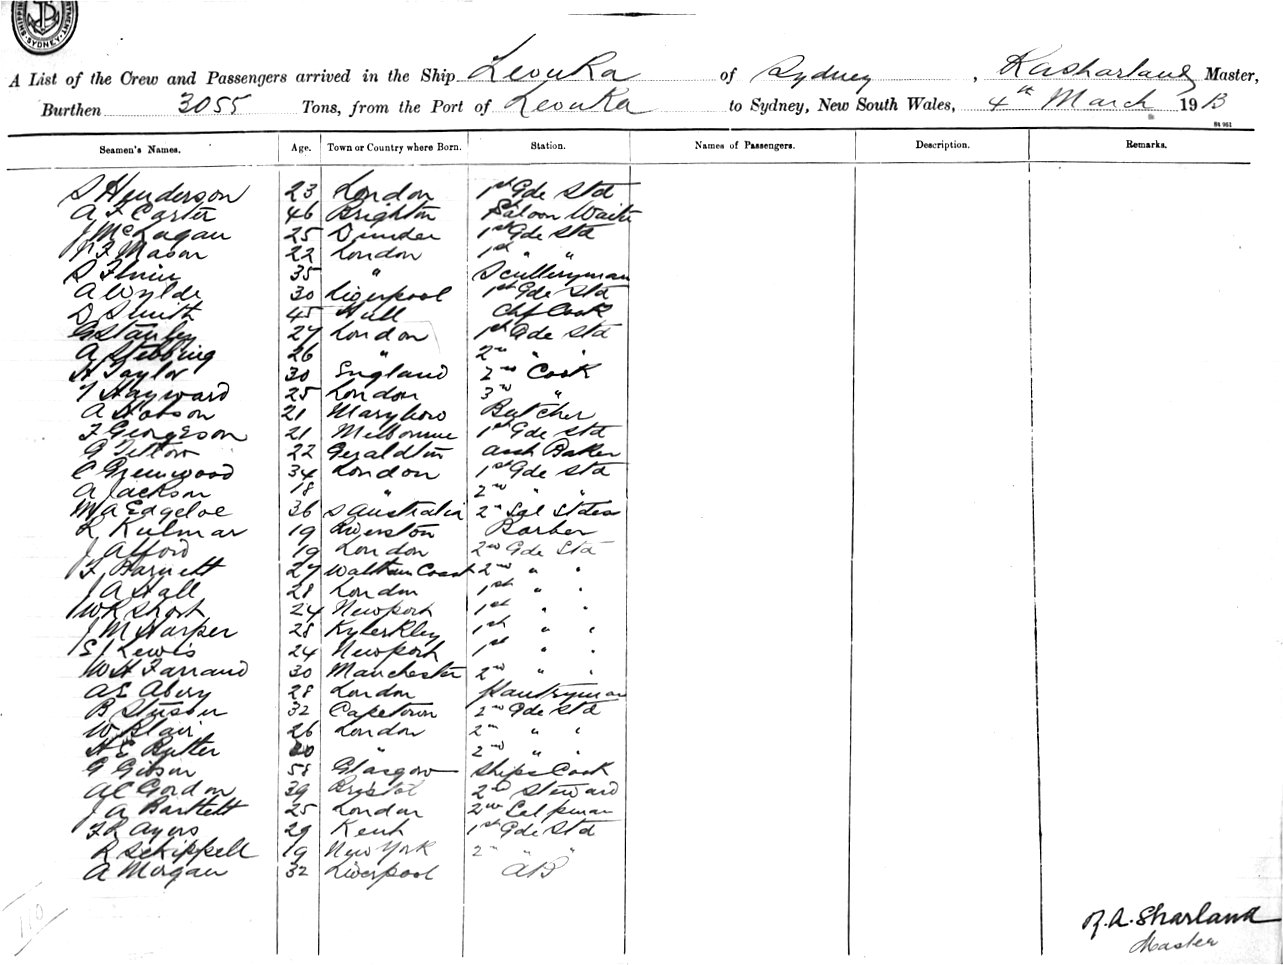 A List of the Crew and Passengers arrived in the Ship Levuka of Sydney, R A Sharland Master,
Burthen 3055 Tons, from the Port of Levuka to Sydney, New South Wales, 4th March 1913
84 961
Seamen's Names. Age. Town or Country where Born. Station. Names of Passengers. Description. Remarks.
S Henderson 23 London 1st Gde Std
A F Carter 46 Brighton Saloon Waiter
J McLagan 25 Dundee 1st Gde Std
F Mason 22 London 1st " "
S 35 " Sculleryman
A Wylde 30 Liverpool 1st Gde Std
D Smith 45 Hull Chf Cook
G Stanley 27 London 1st Gde Std
A Stebbing 26 " 2nd " "
H Taylor 30 England 2nd Cook
T Hayward 25 London 3rd "
A Hobson 21 Maryboro Butcher
F Georgeson 21 Melbourne 1st Gde Std
G Tettow 22 Geraldton Asst Baker
C Greenwood 34 London 1st Gde Std
A Jackson 18 " 2nd " "
M A Edgeloe 36 S Australia 2nd Sal Stdess
R Kulmar 19 Barber
J Afford 19 London 2nd Gde Std
F Barnett 27 2nd " "
J A Hall 28 London 1st " "
W R Short 24 Newport 1st " "
J M Harper 28 1st " "
E J Lewis 24 Newport 1st " "
W H Farrand 30 Manchester 2nd " "
A E Abery 28 London Pantryman
B 32 Capetown 2nd Gde Std
W Blair 26 London 2nd " "
H E Butler " 2nd " "
G Gibson 58 Glasgow Ships Cook
A C Gordon 39 Bristol 2nd Steward
J A Bartlett 25 London 2nd
F R Ayers 29 Kent 1st Gde Std
R Schippell 19 New York 2nd " "
A Morgan 32 Liverpool AB
110
R. A. Sharland
Master